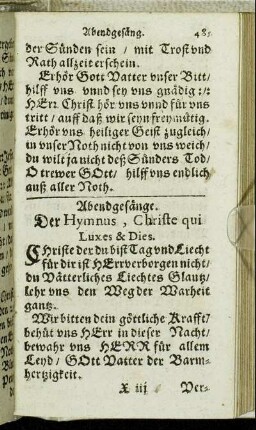 Abendgesäng. 485
der Sünden sein / mit Trost vnd
Rath allzeit erschein.
Erhör Gott Vatter vnser Bitt /
hilff vns vnnd sey vns gnädig :/:
HErr Christ hör vns vnnd für vns
tritt / auff daß wir seyn freymütig.
Erhör vns heiliger Geist zugleich /
in vnser Noth nicht von vns weich /
du wilt ja nicht deß Sünders Tod /
O trewer GOtt / hilff vns endlich
auß aller Noth.
Abendgesänge.
Der Hymnus, Christe qui
Luxes & Dies.
CHriste der du bist Tag vnd Liecht
für dir ist HErr verborgen nicht /
du Vätterliches Liechtes Glantz /
lehr vns den Weg der Warheit
gantz.
Wir bitten dein göttliche Krafft /
behüt vns HErr in dieser Nacht /
bewahr vns HERR für allem
Leyd / GOtt Vatter der Barm-
hertzigkeit.
X iij Ver-